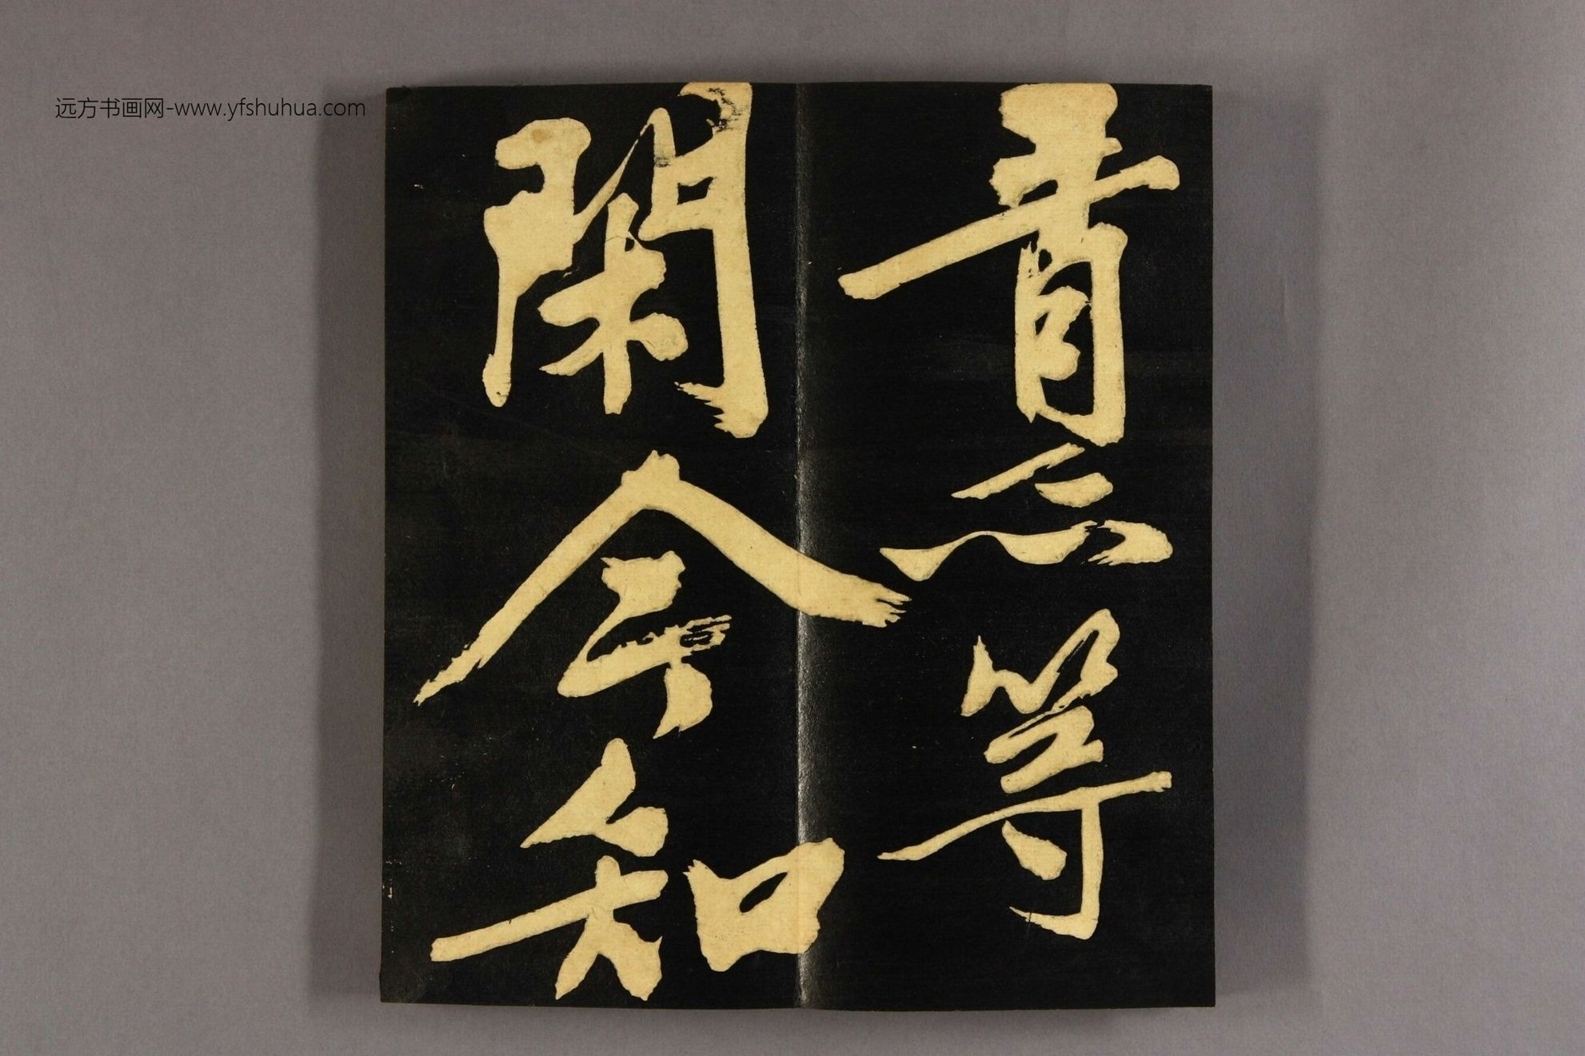 远方书画网-www.yfshuhua.com
意等
閑今知